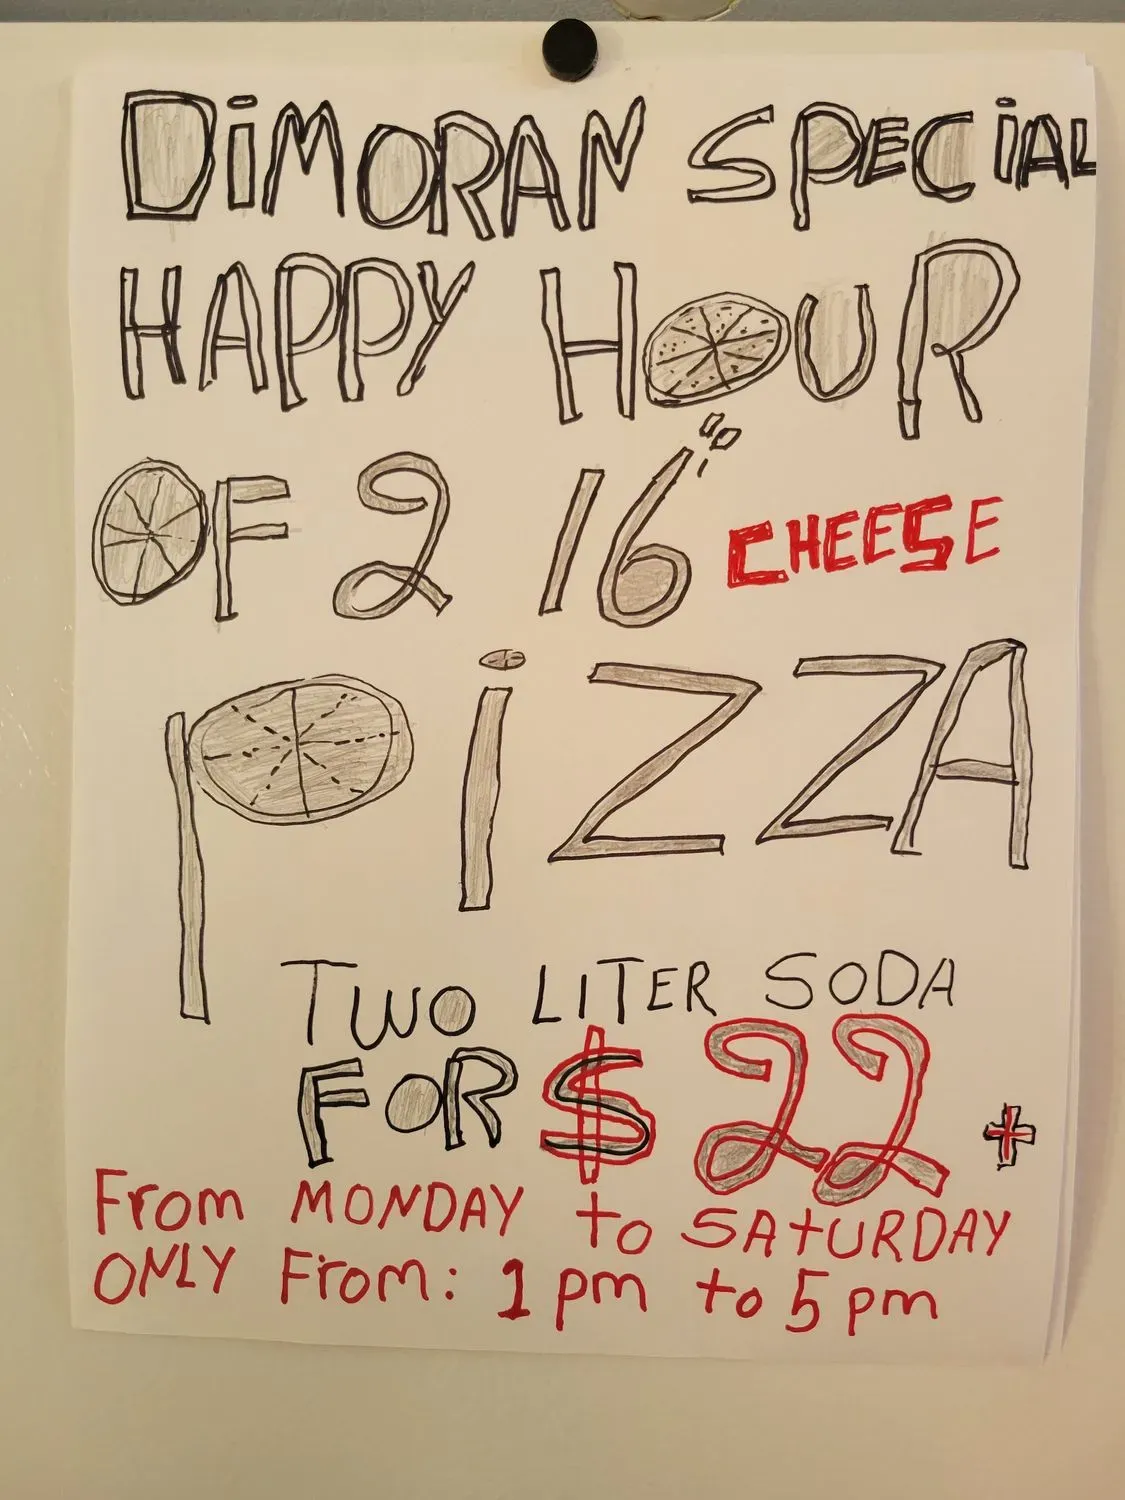 DiMORAN SPECiAL
HAPPY HOUR
OF 2 16 CHEESE
PiZZA
TWO LITER SODA
FOR $ 22 +
From MONDAY to SAtURDAY
ONLY From: 1 pm to 5 pm